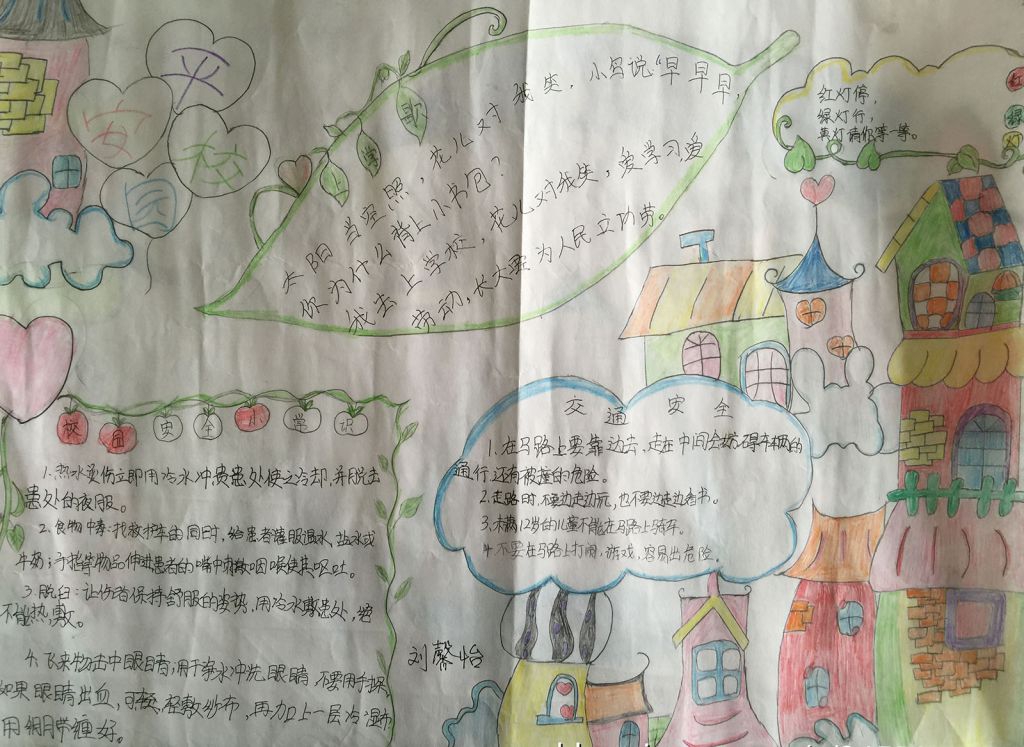 平
安
校
园
歌
学
太阳当空照,花儿对我笑,小鸟说“早早早,
你为什么背上小书包?
我去上学校,花儿对我笑,爱学习,爱
劳动,长大要为人民立功劳。
红灯停,
绿灯行,
黄灯请你等一等。
红
绿
黄
校园安全小学识
1.热水烫伤立即用冷水冲患处使之冷却,并脱去
患处的衣服。
2.食物中毒:找救护车的同时,给患者灌服温水、盐水或
牛奶;手指等物品伸进患者的嘴中刺激咽喉使其呕吐。
3.脱臼:让伤者保持舒服的姿势,用冷水敷患处,
不能热敷。
4.飞来物击中眼睛:用干净水冲洗眼睛,不要用手揉,
如果眼睛出血,可轻轻敷纱布,再加上一层冷湿布
用绷带缠好。
刘馨怡
交通安全
1.在马路上要靠边去,走在中间会妨碍车辆的
通行,还有被撞的危险。
2.走路时,不要边走边玩,也不要边走边看书。
3.未满12岁的儿童不能在马路上骑车。
4.不要在马路上打闹、游戏,容易出危险。